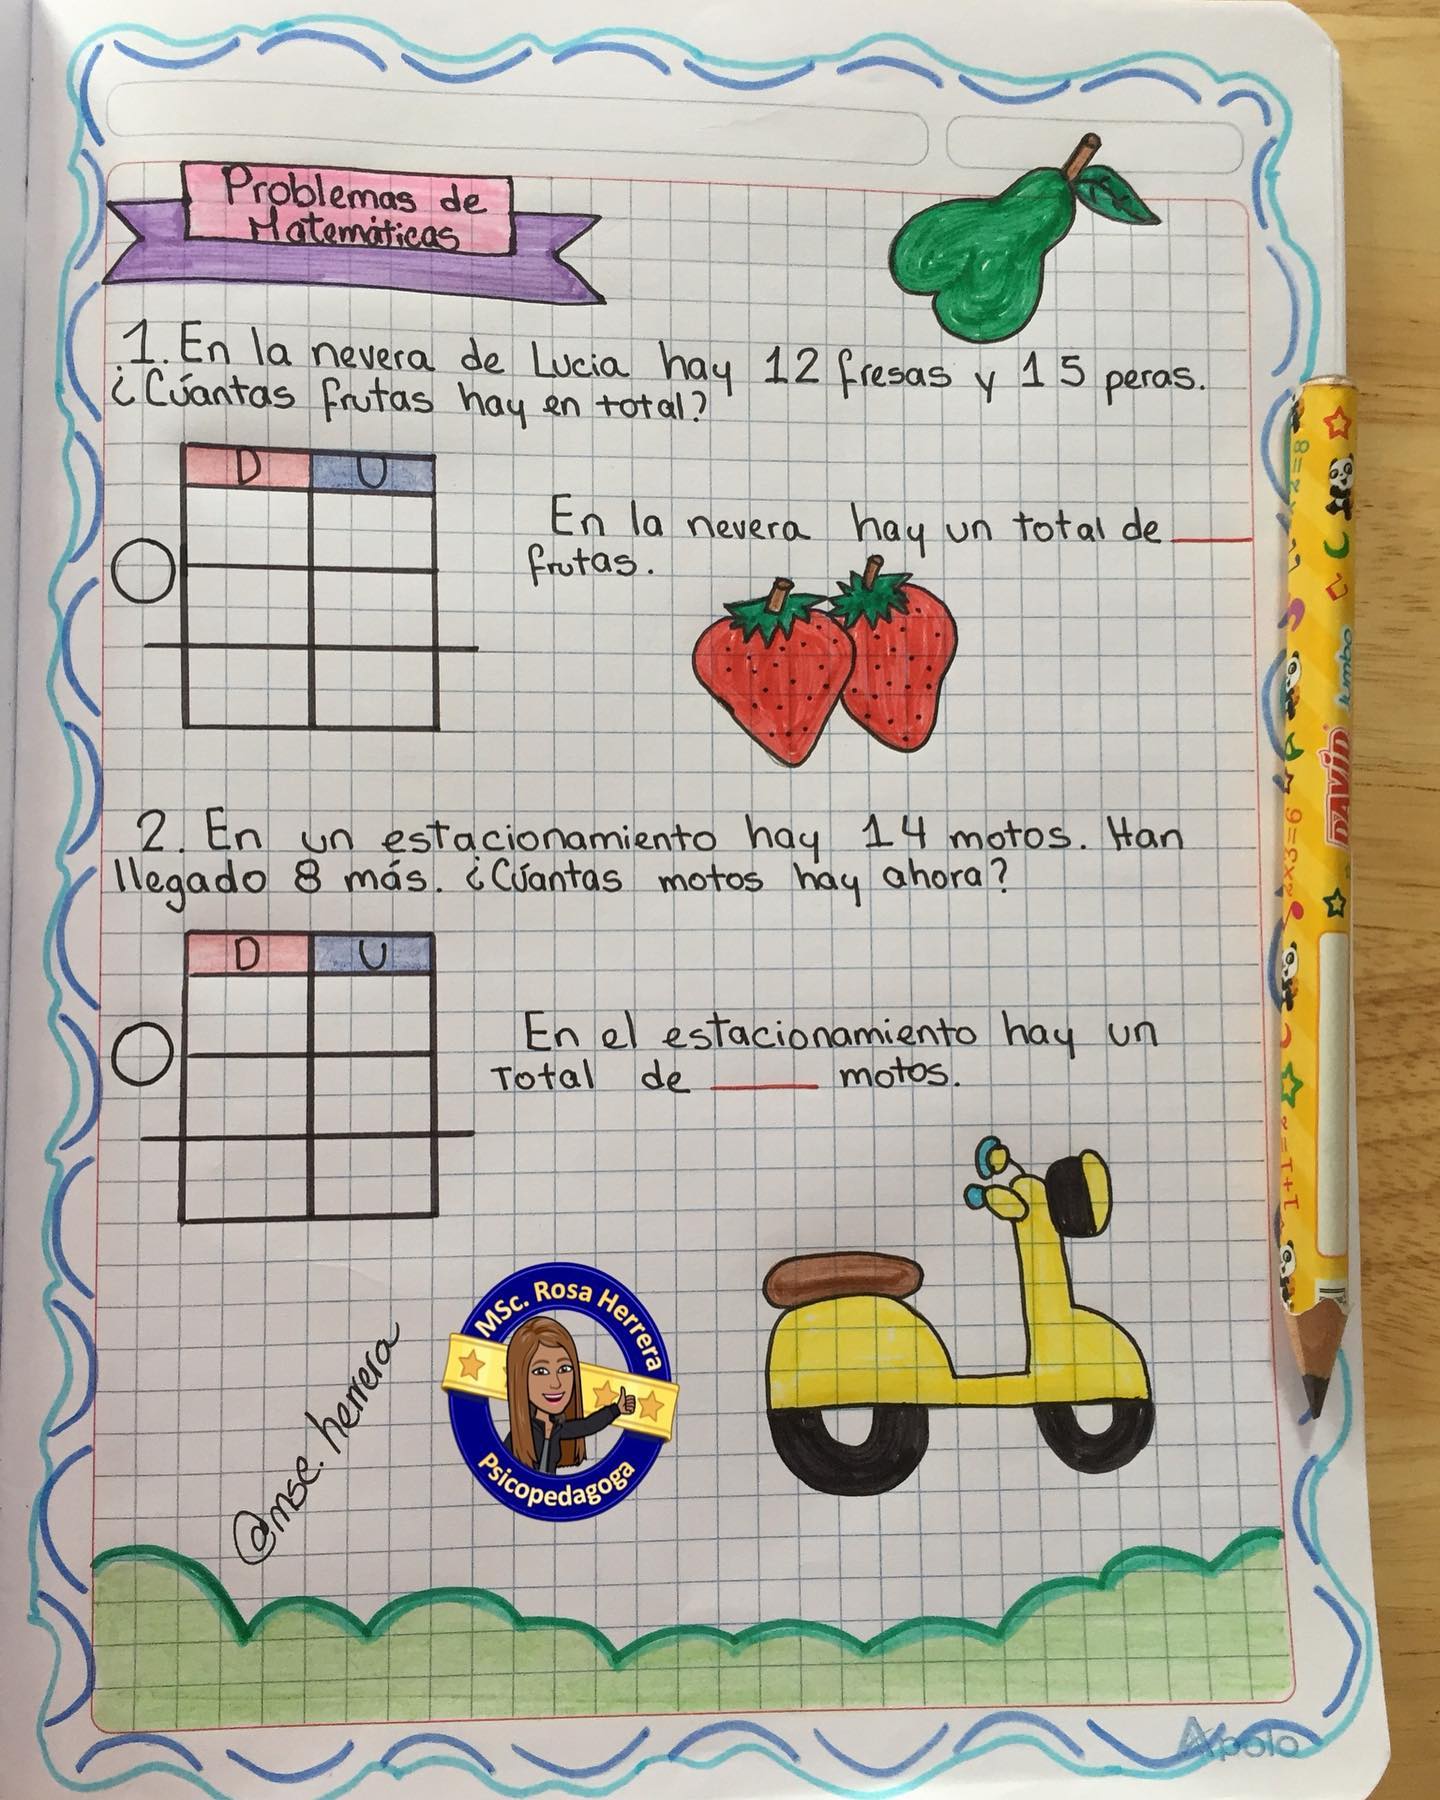 Problemas de
Matemáticas
1. En la nevera de Lucia hay 12 fresas y 15 peras.
¿Cúantas frutas hay en total?
D U
En la nevera hay un total de ____
frutas.
2. En un estacionamiento hay 14 motos. Han
llegado 8 más. ¿Cúantas motos hay ahora?
D U
En el estacionamiento hay un
Total de ____ motos.
@msc.herrera
MSc. Rosa Herrera
Psicopedagoga
Apolo
DAVID
Jumbo
2x3=6
1+1=2